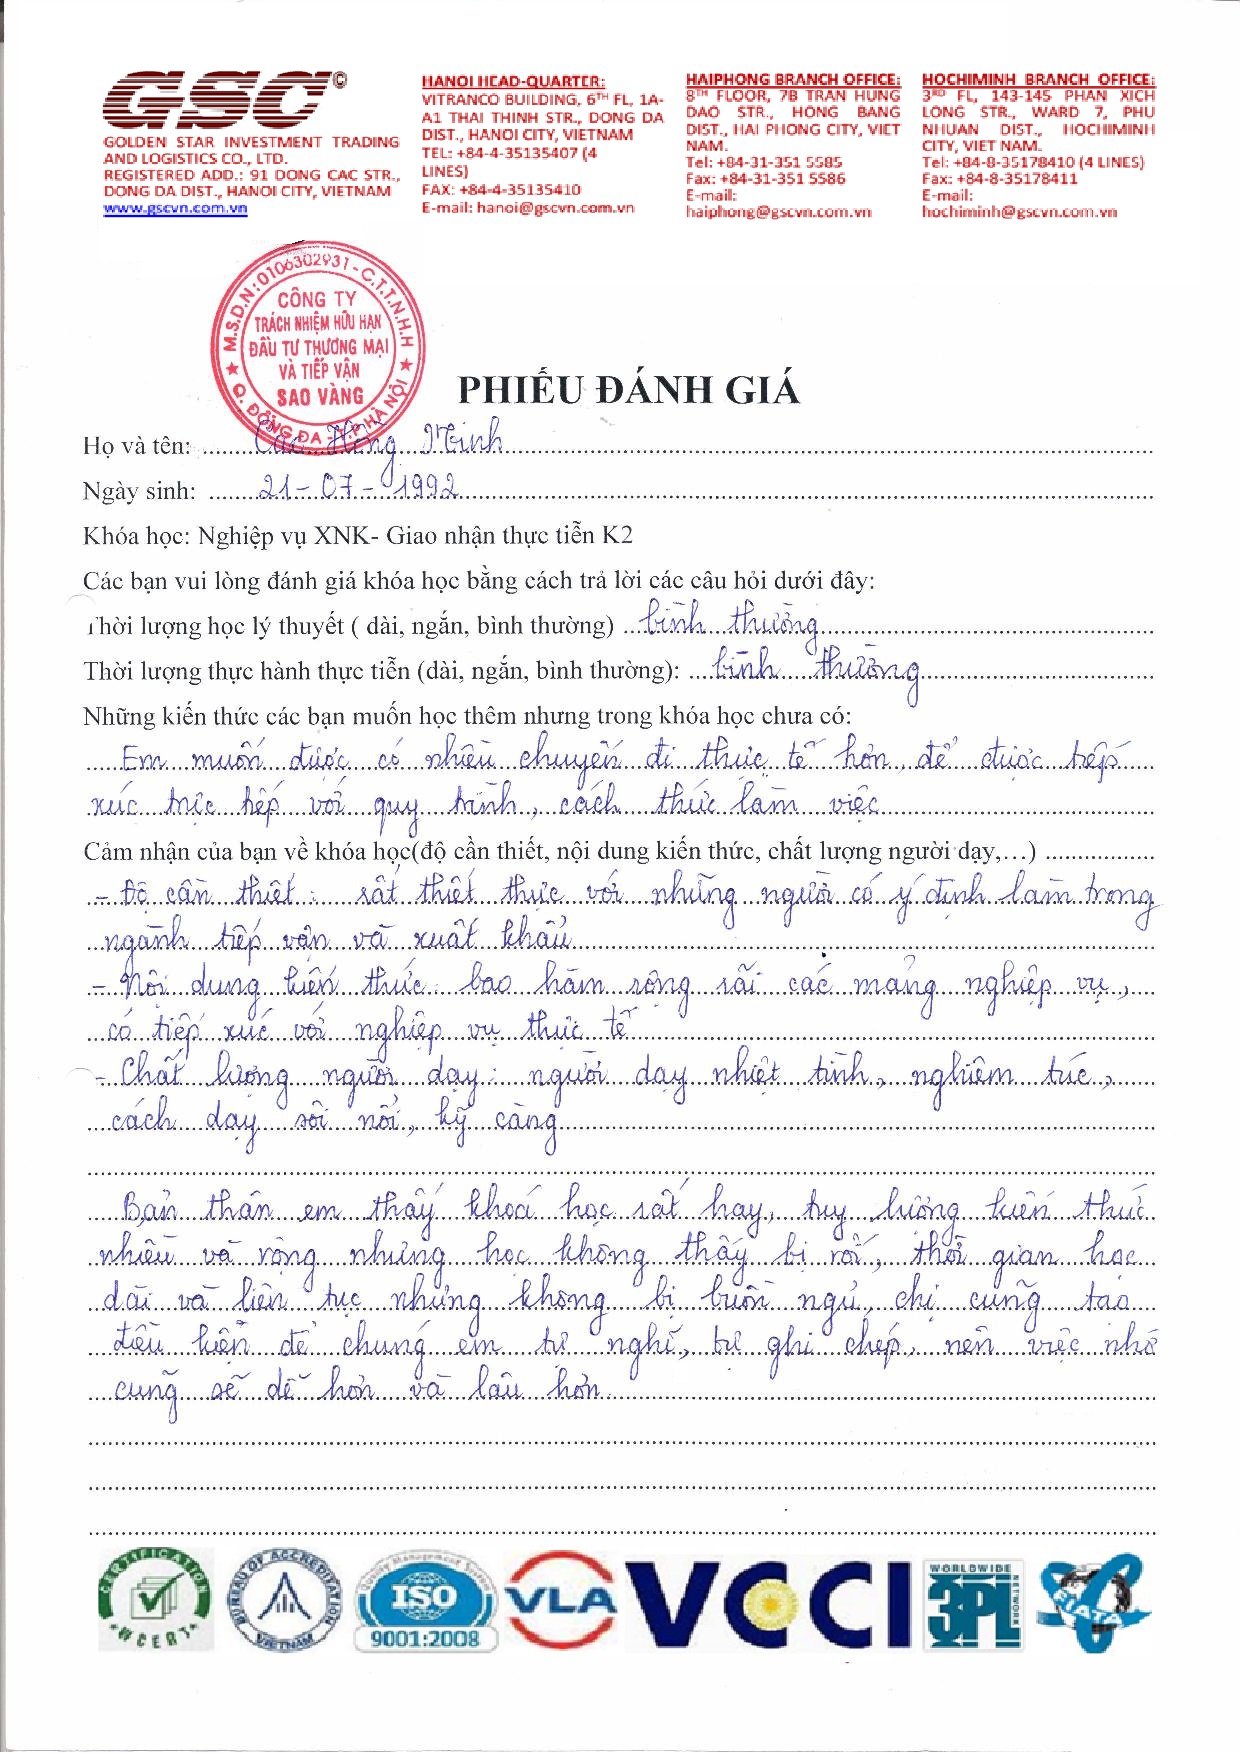 GSC©
GOLDEN STAR INVESTMENT TRADING
AND LOGISTICS CO., LTD.
REGISTERED ADD.: 91 DONG CAC STR.,
DONG DA DIST., HANOI CITY, VIETNAM
www.gscvn.com.vn
HANOI HEAD-QUARTER:
VITRANCO BUILDING, 6TH FL, 1A-
A1 THAI THINH STR., DONG DA
DIST., HANOI CITY, VIETNAM
TEL: +84-4-35135407 (4
LINES)
FAX: +84-4-35135410
E-mail: hanoi@gscvn.com.vn
HAIPHONG BRANCH OFFICE:
8TH FLOOR, 7B TRAN HUNG
DAO STR., HONG BANG
DIST., HAI PHONG CITY, VIET
NAM.
Tel: +84-31-351 5585
Fax: +84-31-351 5586
E-mail:
haiphong@gscvn.com.vn
HOCHIMINH BRANCH OFFICE:
3RD FL, 143-145 PHAN XICH
LONG STR., WARD 7, PHU
NHUAN DIST., HOCHIMINH
CITY, VIET NAM.
Tel: +84-8-35178410 (4 LINES)
Fax: +84-8-35178411
E-mail:
hochiminh@gscvn.com.vn
M.S.D.N: 0106302931 - C.T.T.N.H.H
CÔNG TY
TRÁCH NHIỆM HỮU HẠN
ĐẦU TƯ THƯƠNG MẠI
VÀ TIẾP VẬN
SAO VÀNG
Q. ĐỐNG ĐA - T.P HÀ NỘI
PHIẾU ĐÁNH GIÁ
Họ và tên: Cao Hồng Minh
Ngày sinh: 21-07-1992
Khóa học: Nghiệp vụ XNK- Giao nhận thực tiễn K2
Các bạn vui lòng đánh giá khóa học bằng cách trả lời các câu hỏi dưới đây:
Thời lượng học lý thuyết ( dài, ngắn, bình thường) bình thường
Thời lượng thực hành thực tiễn (dài, ngắn, bình thường): bình thường
Những kiến thức các bạn muốn học thêm nhưng trong khóa học chưa có:
Em muốn được có nhiều chuyến đi thực tế hơn, để được tiếp
xúc trực tiếp với quy trình, cách thức làm việc
Cảm nhận của bạn về khóa học(độ cần thiết, nội dung kiến thức, chất lượng người dạy,…)
- Độ cần thiết: rất thiết thực với những người có ý định làm trong
ngành tiếp vận và xuất khẩu
- Nội dung kiến thức: bao hàm rộng rãi các mảng nghiệp vụ,
có tiếp xúc với nghiệp vụ thực tế
- Chất lượng người dạy: người dạy nhiệt tình, nghiêm túc,
cách dạy sôi nổi, kỹ càng
Bản thân em thấy khoá học rất hay, tuy lượng kiến thức
nhiều và rộng nhưng học không thấy bị rối, thời gian học
dài và liên tục nhưng không bị buồn ngủ, chị cũng tạo
điều kiện để chúng em tự nghĩ, tự ghi chép, nên việc nhớ
cũng sẽ dễ hơn và lâu hơn.
CERTIFICATION
WCERT
BUREAU OF ACCREDITATION
VIETNAM
Quality Management System
ISO
9001:2008
VLA
VCCI
WORLDWIDE
3PL
NETWORK
FIATA